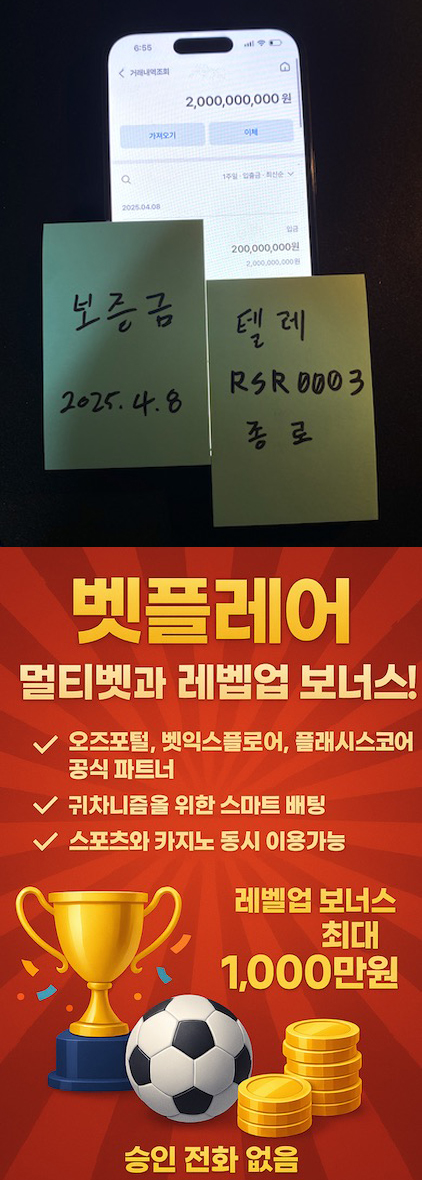 6:55
거래내역조회
2,000,000,000 원
가져오기
이체
1주일 · 입출금 · 최신순
2025.04.08
입금
200,000,000원
2,000,000,000원
보증금
2025.4.8
텔레
RSR0003
종로
벳플레어
멀티벳과 레벨업 보너스!
오즈포털, 벳익스플로어, 플래시스코어
공식 파트너
귀차니즘을 위한 스마트 배팅
스포츠와 카지노 동시 이용가능
레벨업 보너스
최대
1,000만원
승인 전화 없음